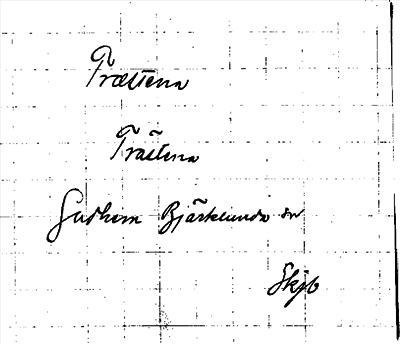 Trættena
Trätena
Gudhem Bjärklunda sn
Skjb